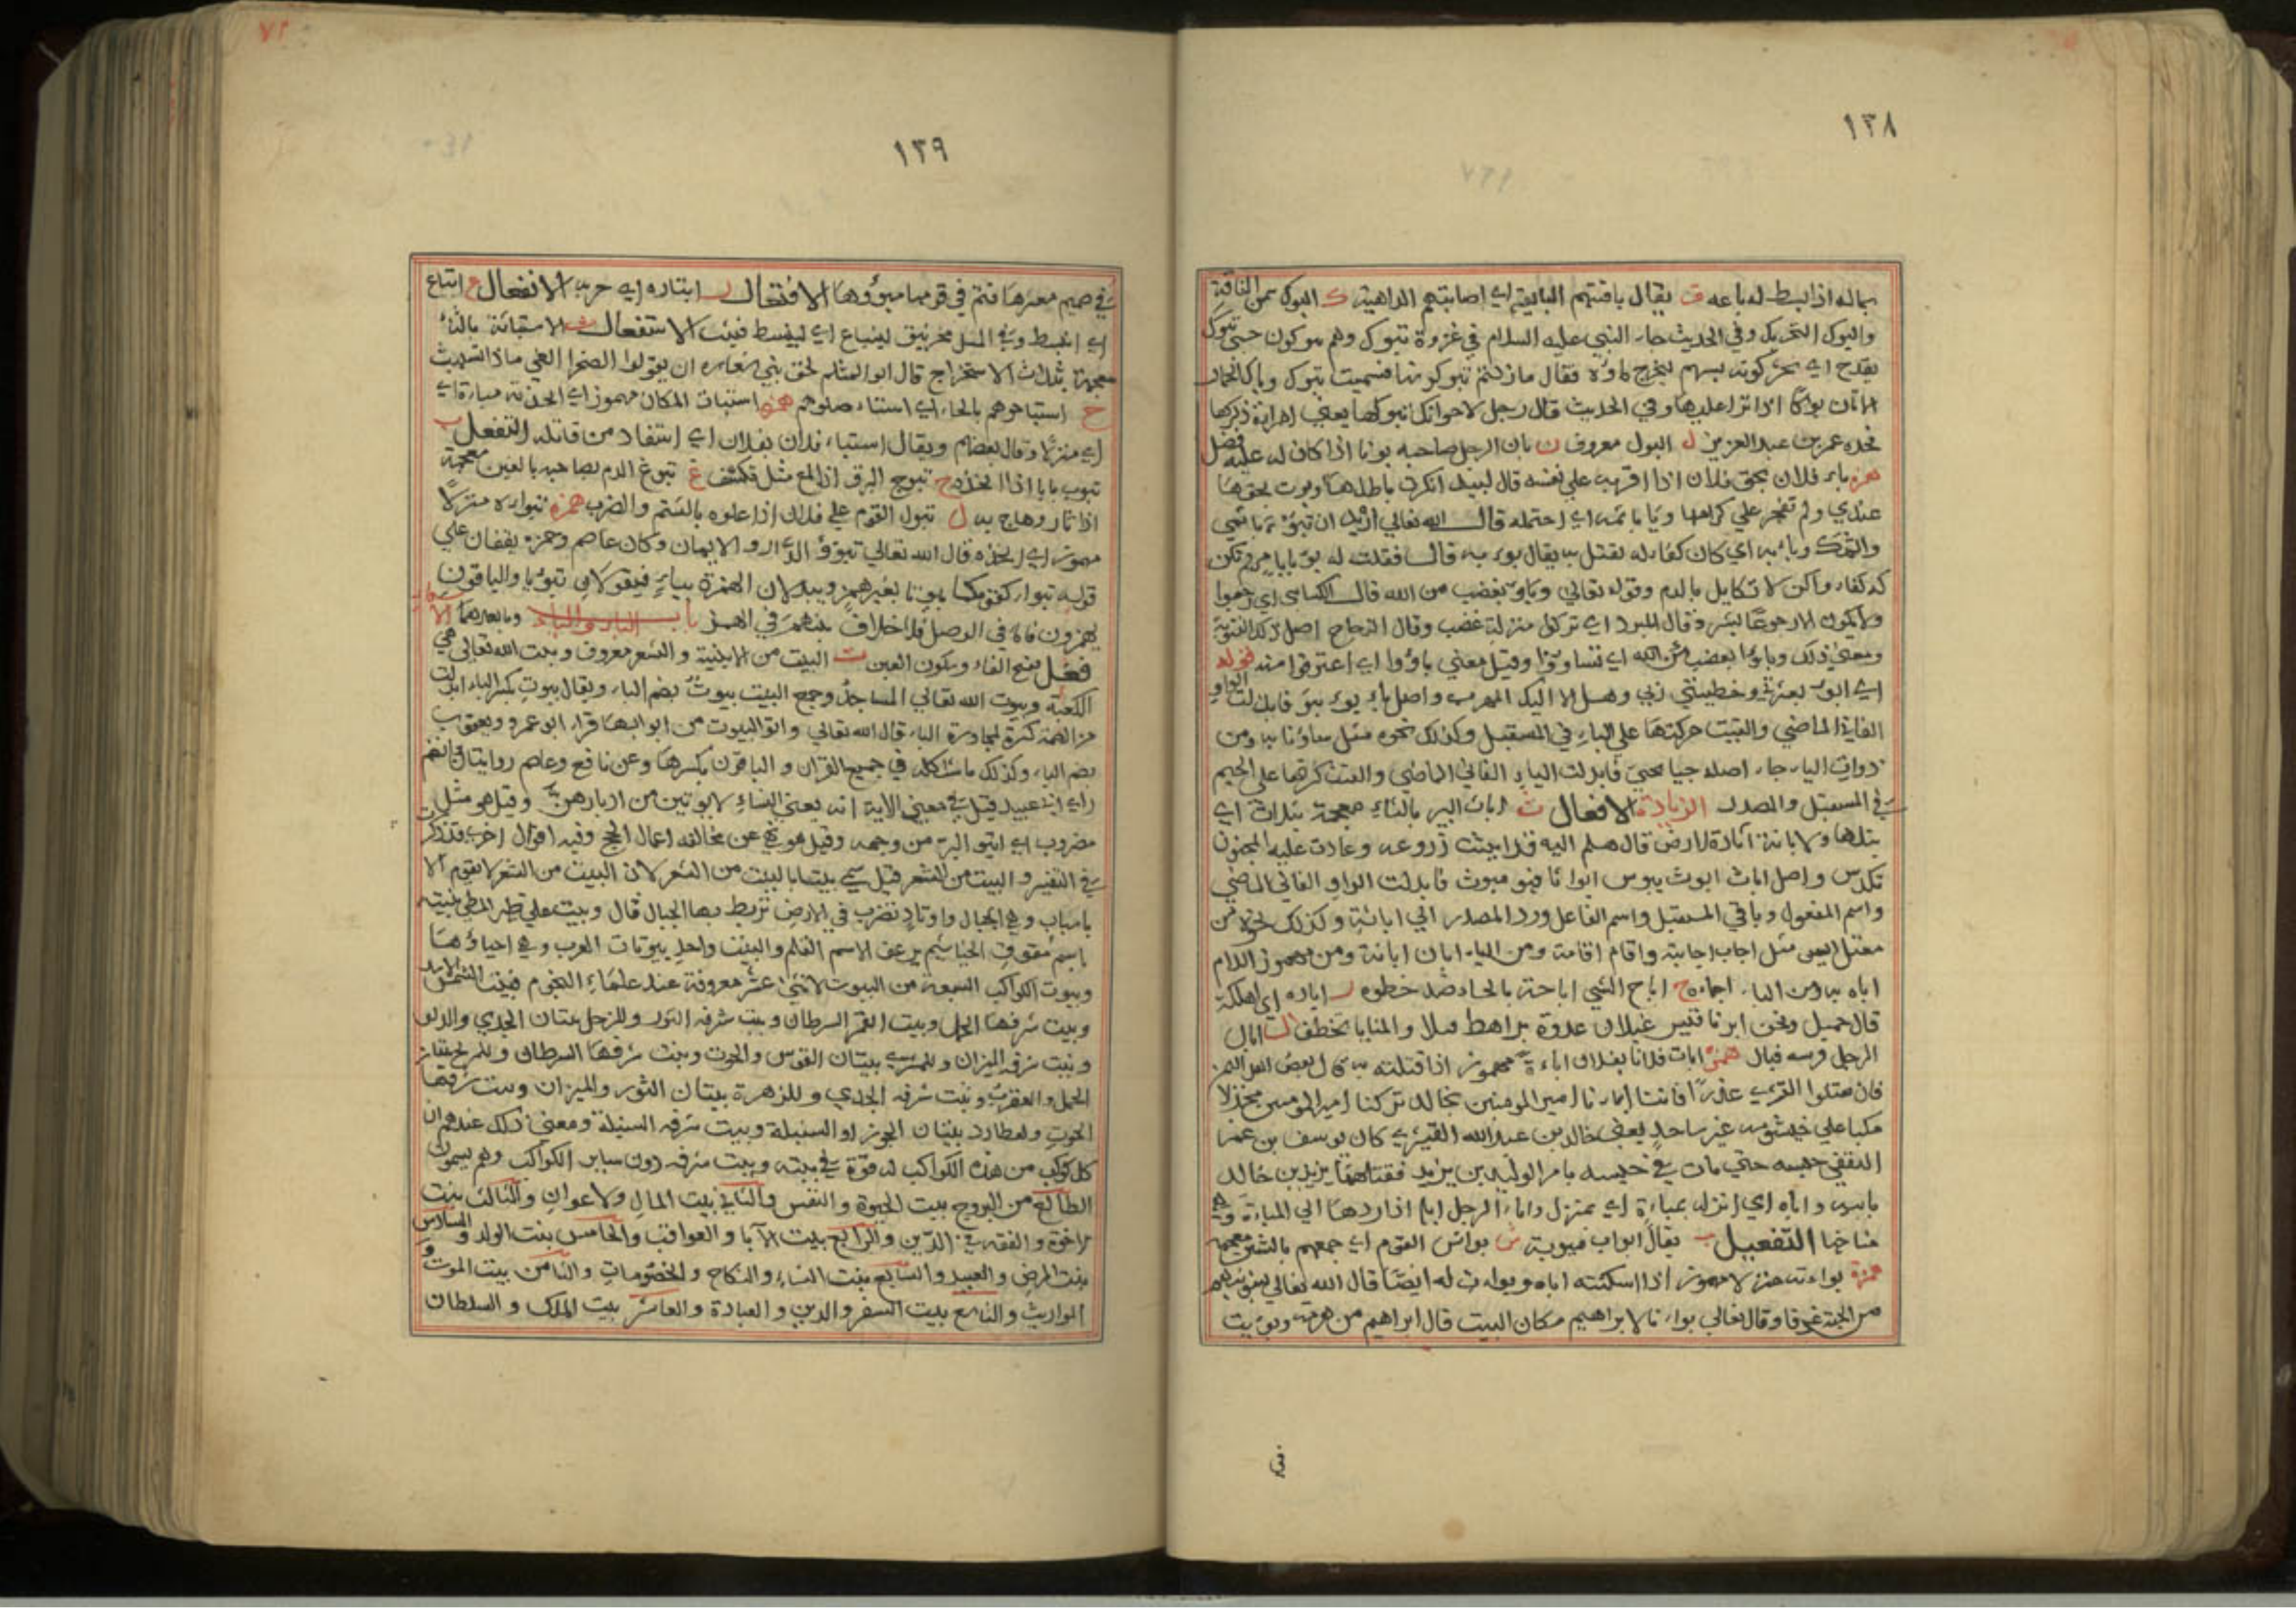 ١٣٨
بماله اذا بسط له باعه ق يقال باقتهم البايقة اي اصابتهم الداهية ك البوك سمن الناقة
والبوك التحريك وفي الحديث جاء النبي عليه السلام في غزوة تبوك وهم يبوكون حسي تبوك
بقدح اي يحركونه بسهم ليخرج ماؤه فقال مازلتم تبوكونها فسميت تبوك وباك الحمار
الاتان بوكا اذا نزا عليها وفي الحديث قال رجل لاخر انك تبوكها يعني امراة ذكرها
فحده عمر بن عبد العزيز ل البول معروف ن بان الرجل صاحبه بونا اذا كان له عليه فضل
همزه باء فلان بحق فلان اذا اقر به علي نفسه قال لبيد انكرت باطلها وبؤت بحقها
عندي ولم تفخر علي كرامها وباء باثمه اي احتمله قال الله تعالي اريد ان تبوء باثمي
واثمك وباء به اي كان كفاء له يقتل به يقال بوء به قال فقلت له بؤ بامرئ لم تكن
له كفاء ولكن لا تكايل بالدم وقوله تعالي وباؤ بغضب من الله قال الكسائي اي رجعوا
ولا يكون الا رجوعا بشر وقال المبرد اي نزلوا منزلة غضب وقال الزجاج اصل ذلك التسوية
ومعني ذلك وباؤا بغضب من الله اي تساووا وقيل معني باؤوا اي اعترفوا منه قوله
اي ابوء بعثرتي وخطيئتي ربي وهل الا اليك المهرب واصل باء يبوء بوء فابدلت الواو
الفا في الماضي والقيت حركتها علي الباء في المستقبل وكذلك نحوه مثل ساء ونا به ومن
ذوات الياء جاء اصله جيا يجئ فابدلت الياء الفا في الماضي والقيت كسرتها علي الجيم
في المستقبل والمصدر الزيادة الافعال ث اباث البير بالثاء معجمة بثلاث اي
نثلها والاباثة اثارة الارض قال هلم اليه قد ابيثت زروعه وعادت عليه المجنون
تكدس واصل اباث ابوث يبوث ابواثا فهو مبوث فابدلت الواو الفا في الماضي
واسم المفعول وباقي المستقبل واسم الفاعل ورد المصدر الي اباثة وكذلك نحوه من
معتل العين مثل اجاب اجابة واقام اقامة ومن الياء ابان ابانة ومن مهموز اللام
اباه به ومن الياء اجاءه ح اباح الشي اباحة بالحاء ضد حظره ر اباره اي اهلكه
قال جميل ونحن ابرنا قيس غيلان عدوة براهط قتلا والمنايا تخطف ل ابال
الرجل فرسه فبال همزه ابات فلانا بفلان اباءة مهموز اذا قتلته به قال بعض اهل اليمن
فان تقتلوا القسري عذرا فاننا ابانا امير المومنين بخالد تركنا امير المومنين مجندلا
مكبا علي خيشومه غير ساجد يعني خالد بن عبد الله القسري كان يوسف بن عمر
الثقفي حبسه حتي مات في حبسه بامر الوليد بن يزيد فقتله يزيد بن خالد
بابيه واباه اي انزله بمباءة اي بمنزل واباء الرجل ابله اذا ردها الي المباءة وهي
مناخها التفعيل ب يقال ابواب مبوبة ش بوش القوم اي جمعهم بالشين معجمة
همزة بواءته منزلا مهموز اذا اسكنته اباه وبواءت له ايضا قال الله تعالي لنبوئنهم
من الجنة غرفا وقال تعالي بوانا لابراهيم مكان البيت قال ابراهيم من هرمة وبوئت
١٣٩
في صميم معشرها فتم في قومها مبوؤها الافتعال ر ابتاره اي جربه الانفعال ع انباع
اي انبسط وفي المثل مخرنبق لينباع اي لينبسط فيثب الاستفعال ث الاستباثة بالثاء
معجمة بثلاث الاستخراج قال ابو المثلم لحق بني شعارة ان يقولوا لصخر الغي ماذا تستبيث
ح استباحوهم بالحاء اي استاصلوهم همزه استبات المكان مهموز اي اتخذته مباءة اي
اي منزلا وقال بعضهم ويقال استباء فلان بفلان اي استفاد من قاتله التفعل ب
تبوب بابا اذا اتخذه ج تبوج البرق اذا لمع مثل تكشف غ تبوغ الدم بصاحبه بالغين معجمة
اذا ثار وهاج به ل تبول القوم علي فلان اذا علوه بالشتم والضرب همزه تبواءه منزلا
مهموز اي اتخذه قال الله تعالي تبوؤ الدار والايمان وكان عاصم وحمزه يقفان علي
قوله تبواء لقومكما بيوتا بغير همز ويبدلان الهمزة بياء فيقولان تبويا والباقون
يهمزون فاما في الوصل فلا اختلاف بينهم في الهمز باب الباء والياء وما بعدهما الا
فعل بفتح الفاء وسكون العين ت البيت من الابنية والشعر معروف وبيت الله تعالي هي
الكعبة وبيوت الله تعالي المساجد وجمع البيت بيوت بضم الباء ويقال بيوت بكسر الباء ابدلت
من الضمة كسرة لمجاورة الياء قال الله تعالي واتو البيوت من ابوابها قراء ابو عمرو ويعقوب
بضم الباء وكذلك ما شاكله في جميع القران والباقون بكسرها وعن نافع وعاصم روايتان
راي ابو عبيد قيل في معني الاية انه يعني النساء لا يوتين من ادبارهن وقيل هو مثل
مضروب اي ايتو البر من وجهه وقيل هو نهي عن مخالفة اعمال الحج وفيه اقوال اخر قد ذكرت
في التفسير والبيت من الشعر قيل سمي بيتا بالبيت من الشعر لان البيت من الشعر لا يقوم الا
باسباب وهي الحبال واوتاد تضرب في الارض تربط بها الحبال قال وبيت علي ظهر المطي بنيته
باسم مشقوق الخياشيم يرعف الاسم القلم والبيت واحد بيوتات العرب وهي احياؤها
وبيوت الكواكب السبعة من البيوت الاثني عشر معروفة عند علماء النجوم فبيت الشمس الاسد
وبيت شرفها الحمل وبيت القمر السرطان وبيت شرفه الثور وللزحل بيتان الجدي والدلو
وبيت شرفه الميزان وللمشتري بيتان القوس والحوت وبيت شرفها السرطان وللمريخ بيتان
الحمل والعقرب وبيت شرفه الجدي وللزهرة بيتان الثور والميزان وبيت شرفها
الحوت ولعطارد بيتان الجوزا والسنبلة وبيت شرفه السنبلة ومعني ذلك عندهم ان
كل كوكب من هذه الكواكب له قوة في بيته وبيت شرفه دون ساير الكواكب وهم يسمون
الطالع من البروج بيت الحيوة والنفس والثاني بيت المال والاعوان والثالث بيت
الاخوة والفقه في الدين والرابع بيت الابا والعواقب والخامس بيت الولد والسادس
بيت المرض والعبيد والسابع بيت النساء والنكاح والخصومات والثامن بيت الموت و
المواريث والتاسع بيت السفر والدين والعبادة والعاشر بيت الملك والسلطان